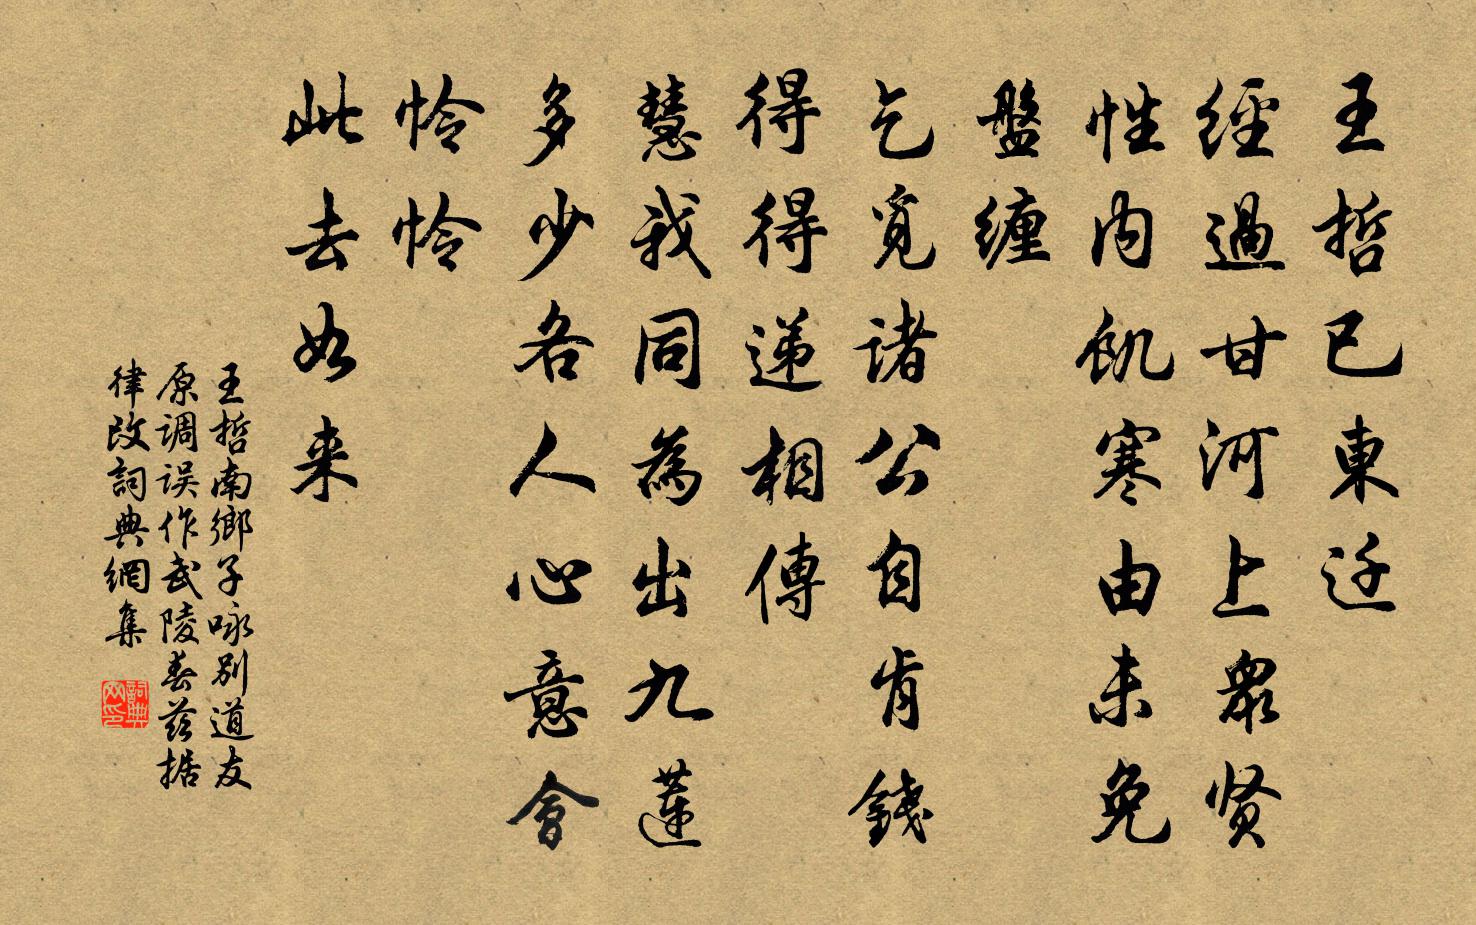 王哲已東迁
經過甘河上衆贤
性内飢寒由未免
盤缠
乞覓諸公自肯錢
得得递相傳
慧我同為出九蓮
多少各人心意會
怜怜
此去如来
王哲南鄉子咏别道友
原调误作武陵春兹据
律改詞典網集
詞典
网印